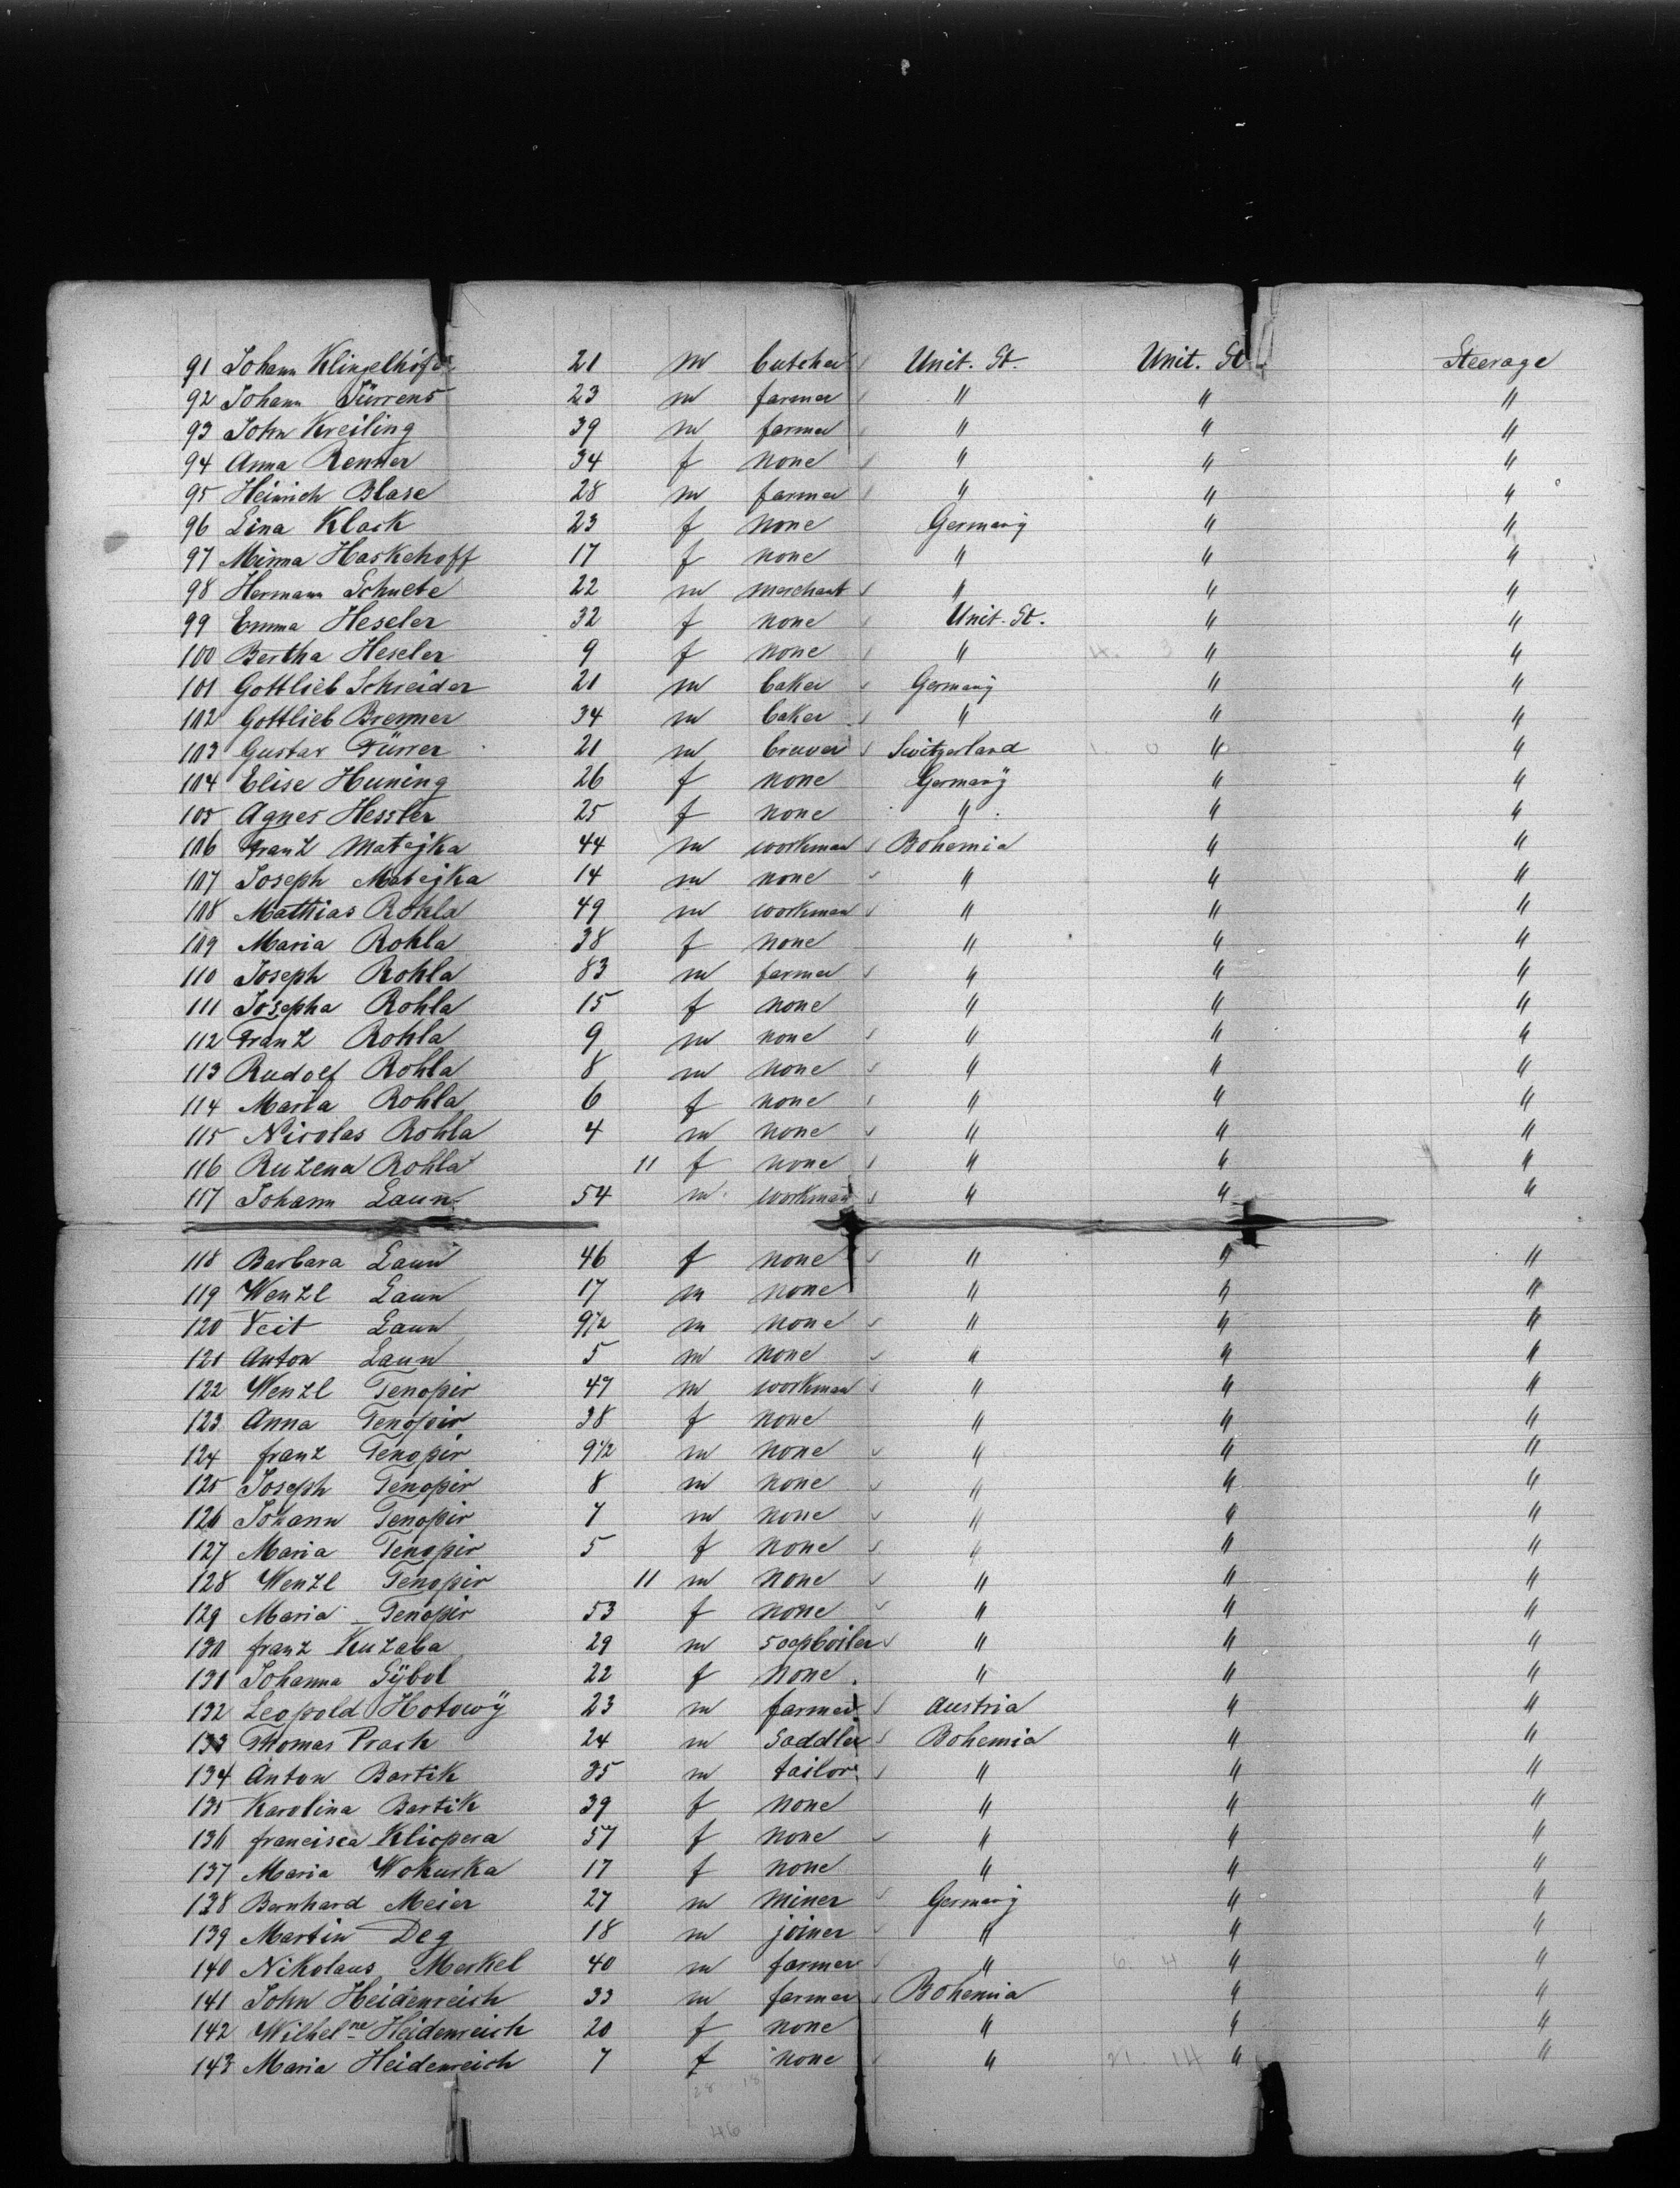 91 Johann Klingelhöfe 21 m butcher Unit. St. Unit. St. Steerage
92 Johann Türrens 23 m farmer " " "
93 John Kreiling 39 m farmer " " "
94 Anna Renner 34 f none " " "
95 Heinrich Blase 28 m farmer " " "
96 Lina Klack 23 f none Germany " "
97 Minna Haskehoff 17 f none " " "
98 Hermann Schuete 22 m merchant " " "
99 Emma Heseler 32 f none Unit. St. " "
100 Bertha Heseler 9 f none " " "
101 Gottlieb Schreider 21 m baker Germany " "
102 Gottlieb Bremer 34 m baker " " "
103 Gustav Fürrer 21 m brewer Switzerland " "
104 Elise Huning 26 f none Germany " "
105 Agnes Hessler 25 f none " " "
106 Franz Matejka 44 m workman Bohemia " "
107 Joseph Matejka 14 m none " " "
108 Mathias Rohla 49 m workman " " "
109 Maria Rohla 38 f none " " "
110 Joseph Rohla 83 m farmer " " "
111 Josepha Rohla 15 f none " " "
112 Franz Rohla 9 m none " " "
113 Rudolf Rohla 8 m none " " "
114 Maria Rohla 6 f none " " "
115 Nicolas Rohla 4 m none " " "
116 Ruzena Rohla 11 f none " " "
117 Johann Laun 54 m workman " " "
118 Barbara Laun 46 f none " " "
119 Wenzl Laun 17 m none " " "
120 Veit Laun 9 1/2 m none " " "
121 Anton Laun 5 m none " " "
122 Wenzl Tenopir 47 m workman " " "
123 Anna Tenopir 38 f none " " "
124 franz Tenopir 9 1/2 m none " " "
125 Joseph Tenopir 8 m none " " "
126 Johann Tenopir 7 m none " " "
127 Maria Tenopir 5 f none " " "
128 Wenzl Tenopir 11 m none " " "
129 Maria Tenopir 53 f none " " "
130 franz Kuzaba 29 m soapboiler " " "
131 Johanna Sÿbol 22 f none " " "
132 Leopold Hotowÿ 23 m farmer Austria " "
133 Thomas Prach 24 m Saddler Bohemia " "
134 Anton Bartik 35 m tailor " " "
135 Karolina Bartik 39 f none " " "
136 francisca Klicpera 57 f none " " "
137 Maria Wokurka 17 f none " " "
138 Bernhard Meier 27 m miner Germany " "
139 Martin Deg 18 m joiner " " "
140 Nikolaus Merkel 40 m farmer " " "
141 John Heidenreich 33 m farmer Bohemia " "
142 Wilhelne Heidenreich 20 f none " " "
143 Maria Heidenreich 7 f none " 21 14 " "
28 18
46